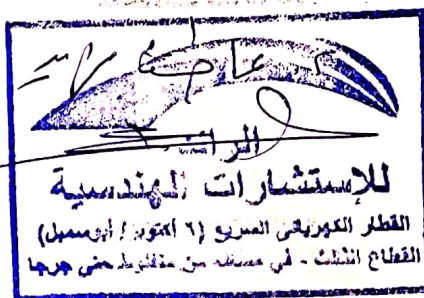 م. عاطف
الرائد
للإستشارات الهندسية
القطار الكهربائى السريع (٦ أكتوبر / أبوسمبل)
القطاع الثالث - فى مسافه من منفلوط حتى جرجا